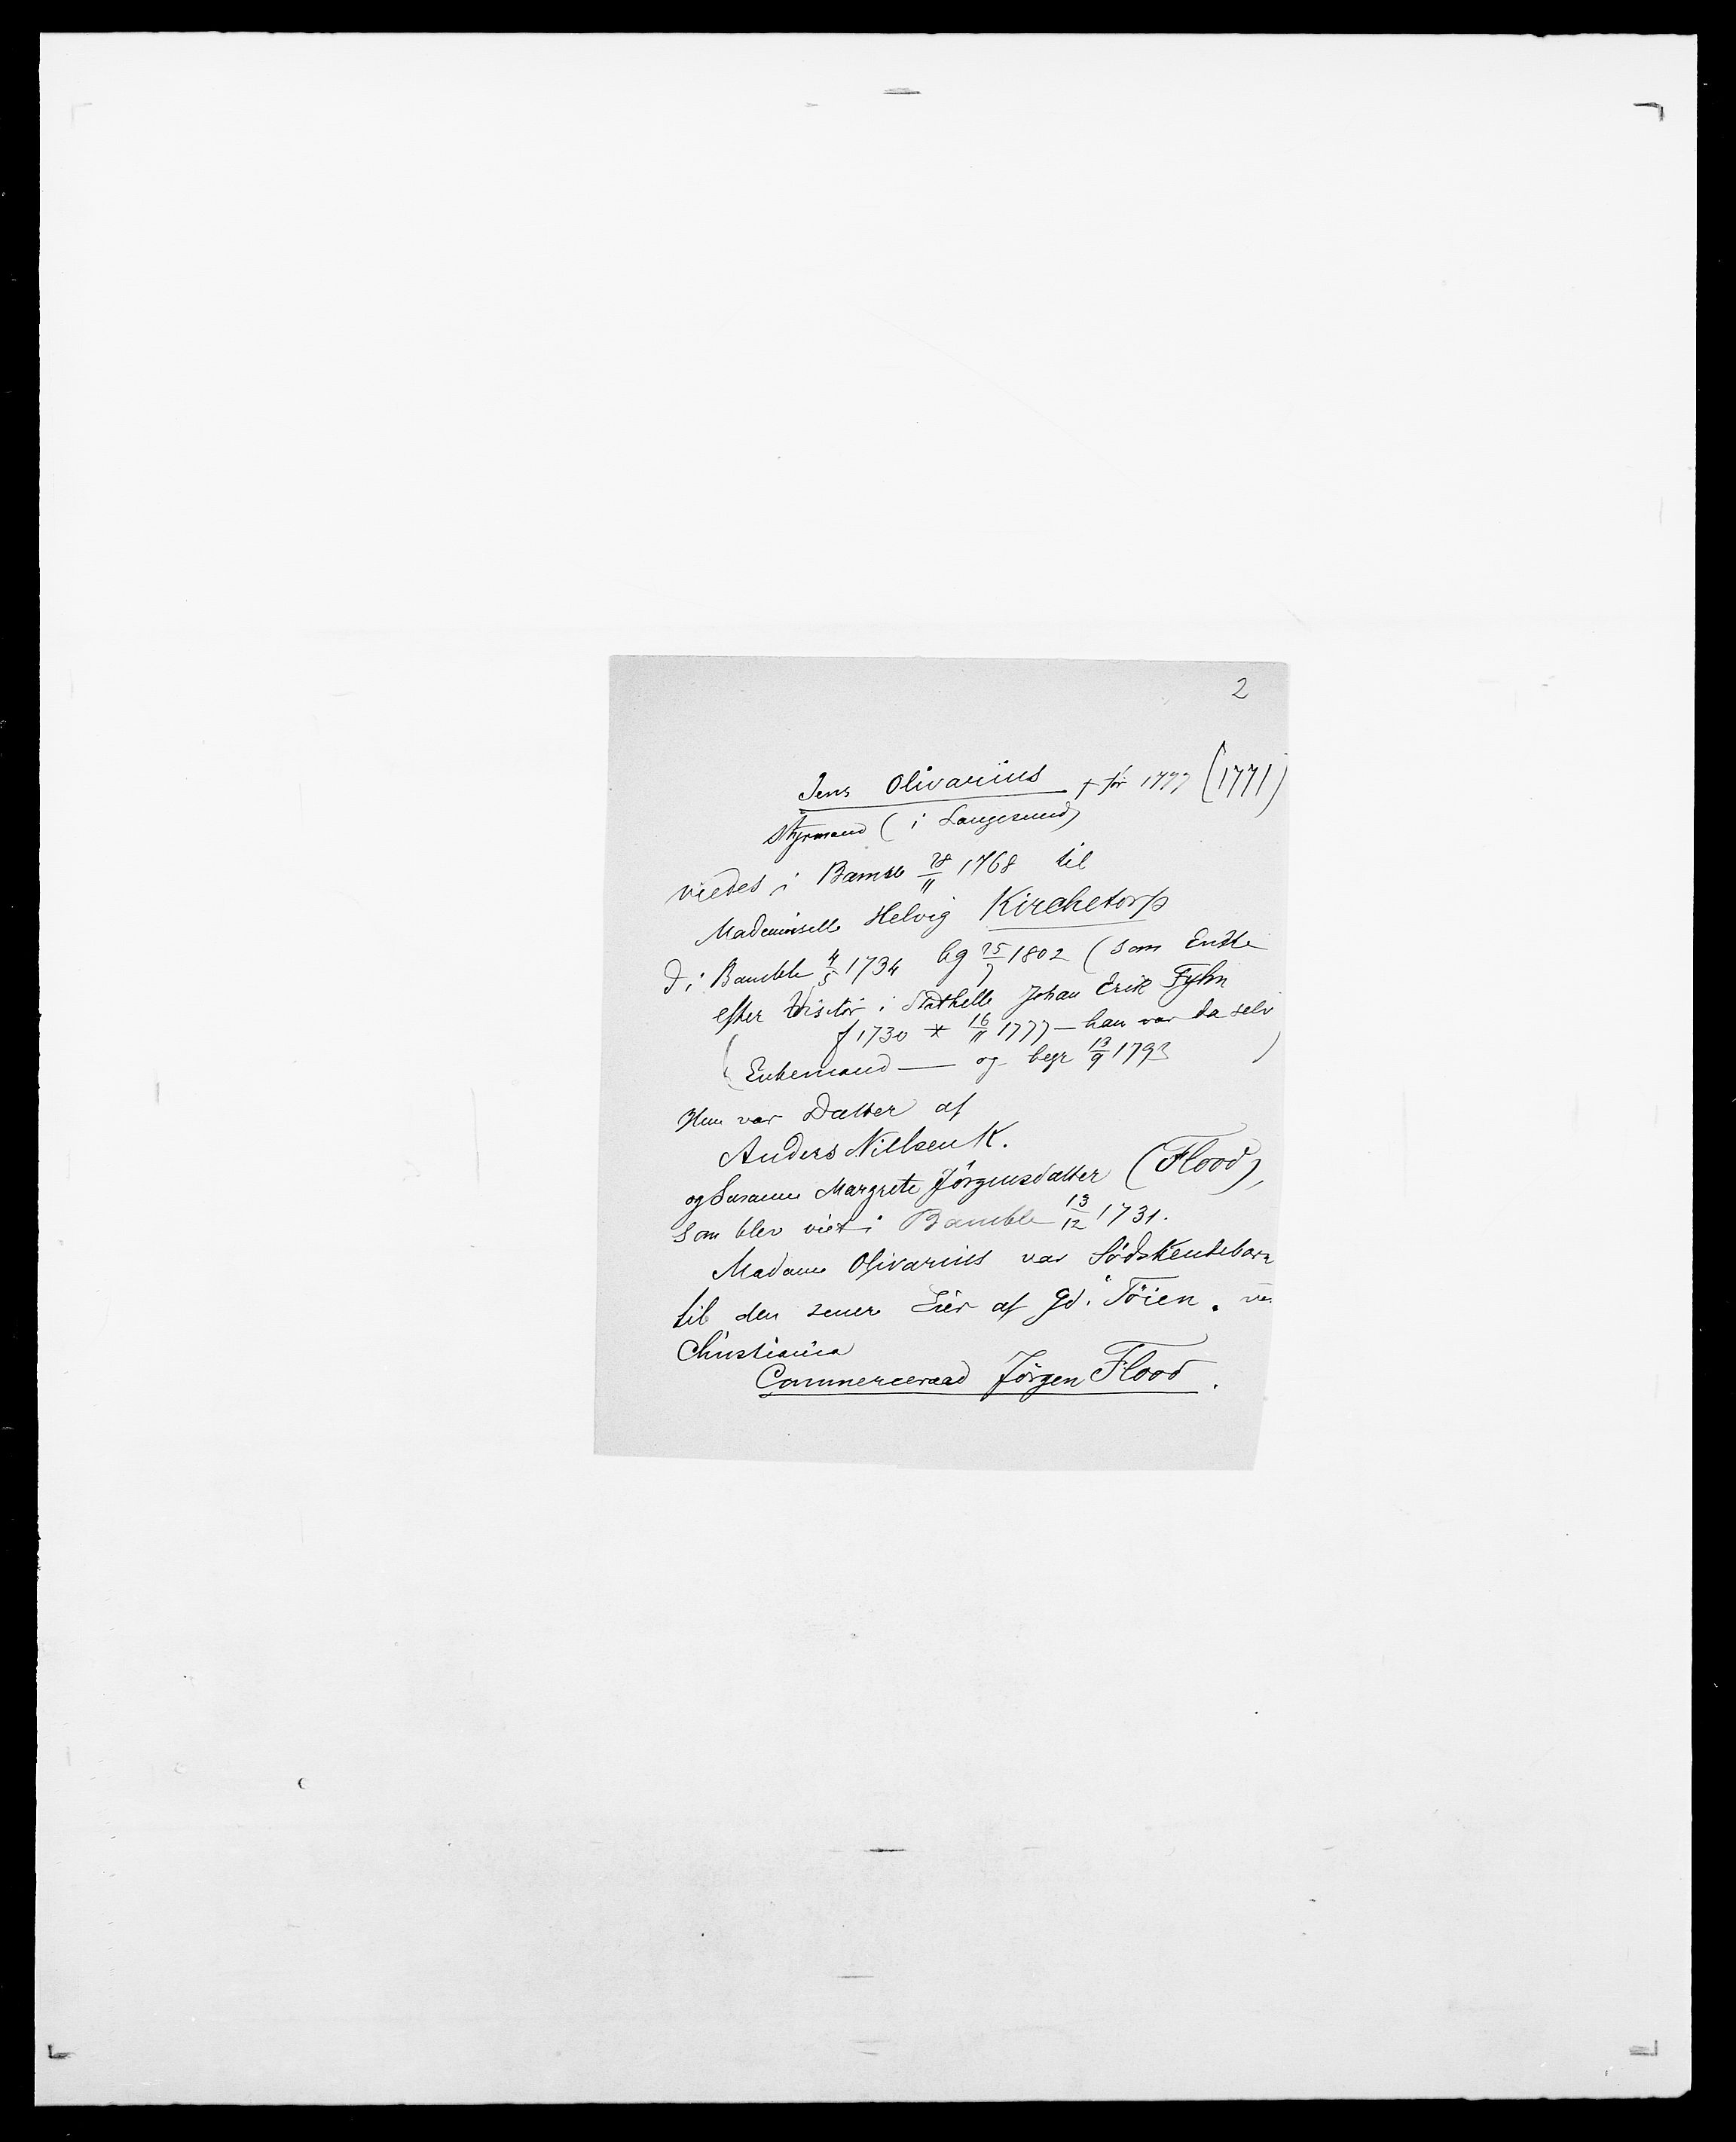 2
Jens Olivarius † før 1777 (1771)
Styrmand (i Langesund)
viedes i Bamble 28/11 1768 til
Mademoiselle Helvig Kirchetorp
D. i Bamble 4/5 1734 bg 25/7 1802 (som Enke
efter Visitør i Stathelle Johan Erik Fyhn
f 1730 * 16/11 1777 — han var da selv
(Enkemand — og begr 13/9 1793 )
Hun var Datter af
Anders Nillsen K.
og Susanne Margrete Jörgensdatter (Flood),
som blev viet i Bamble 13/12 1731.
Madame Olivarius var Södskendebarn
til den senere Eier af Gd. Töien. ve
Christiania
Commerceraad Jörgen Flood.